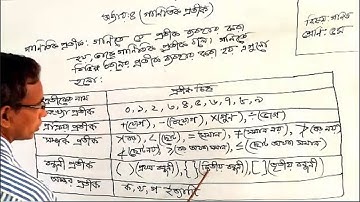 অধ্যায়ঃ ৪ (গাণিতিক প্রতীক)
বিষয়ঃ গণিত
শ্রেণিঃ ৫ম
গাণিতিক প্রতীকঃ গণিতে যে প্রতীক ব্যবহার করা
হয়, তাকে গাণিতিক প্রতীক বলে। গণিতে
বিভিন্ন ধরনের প্রতীক ব্যবহার করা হয়। এগুলো
হলোঃ
প্রতীকের নাম প্রতীক চিহ্ন
০, ১, ২, ৩, ৪, ৫, ৬, ৭, ৮, ৯
প্রতীক +(যোগ), -(বিয়োগ), ×(গুণ), ÷(ভাগ)
প্রতীক >(বড়), <(ছোট), =(সমান),
বন্ধনী প্রতীক ( )প্রথম বন্ধনী, { }দ্বিতীয় বন্ধনী, [ ]তৃতীয় বন্ধনী
প্রতীক ক, খ, গ ইত্যাদি